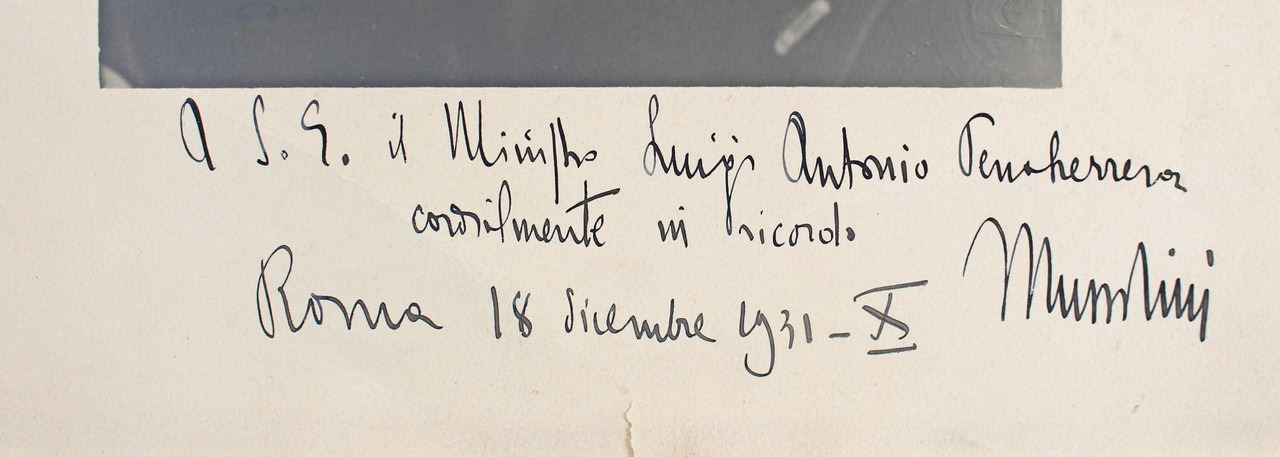 A S. E. il Ministro Luigi Antonio Penaherrera
cordialmente in ricordo
Mussolini
Roma 18 dicembre 1931 - X